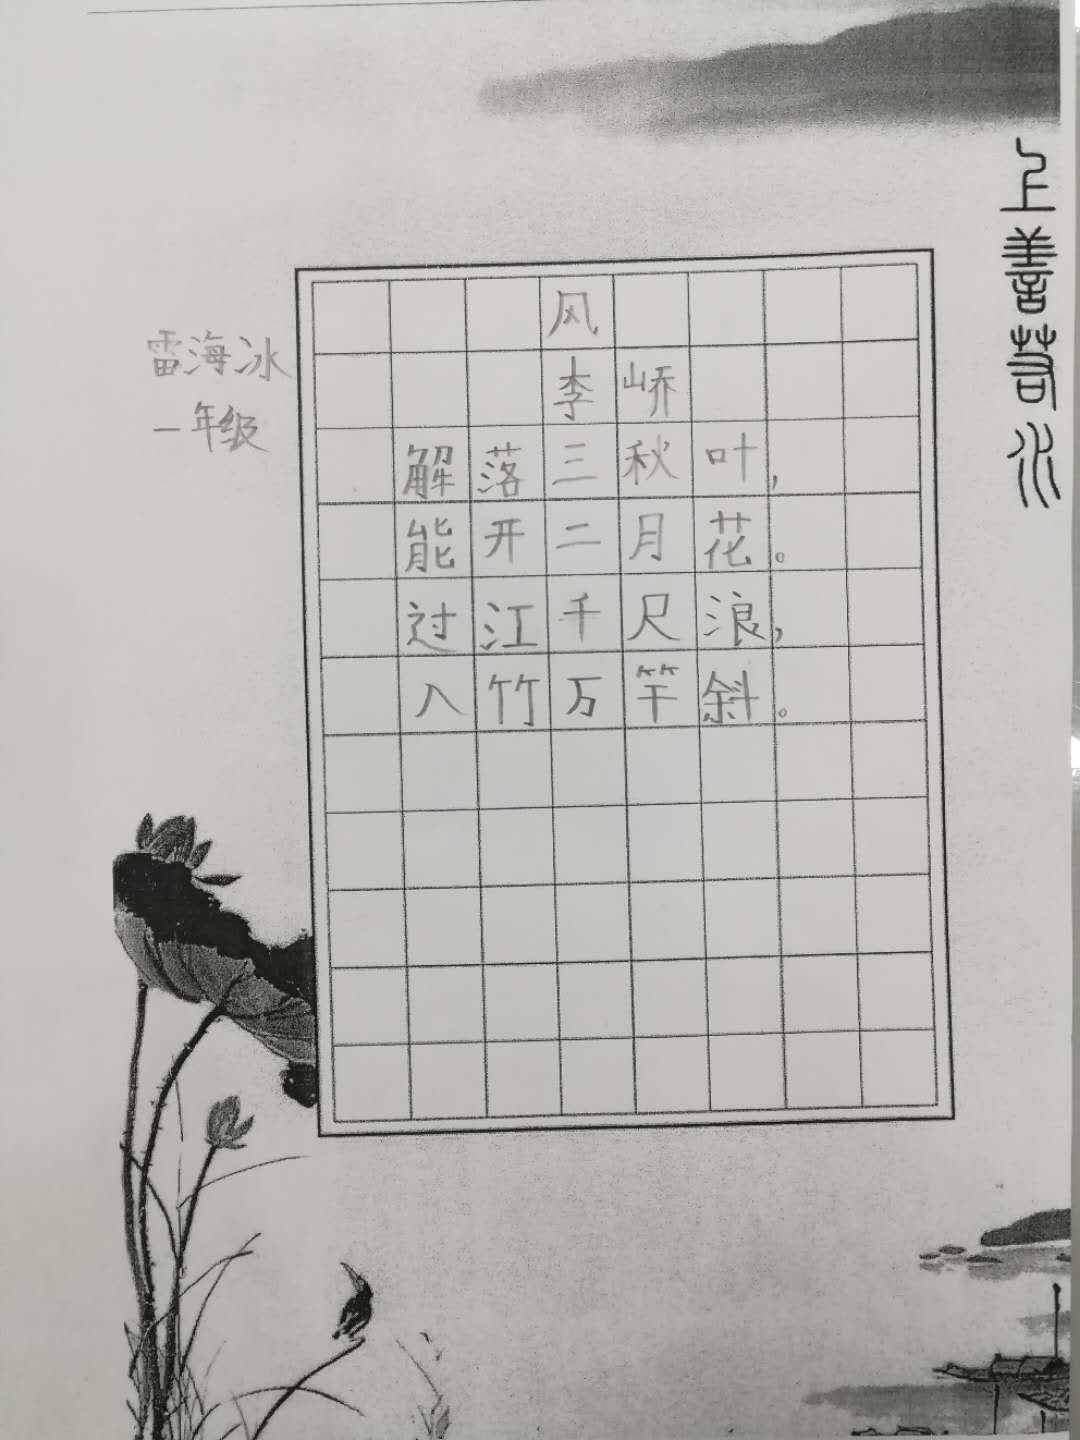 上善若水
雷海冰
一年级
风
李峤
解落三秋叶,
能开二月花。
过江千尺浪,
入竹万竿斜。